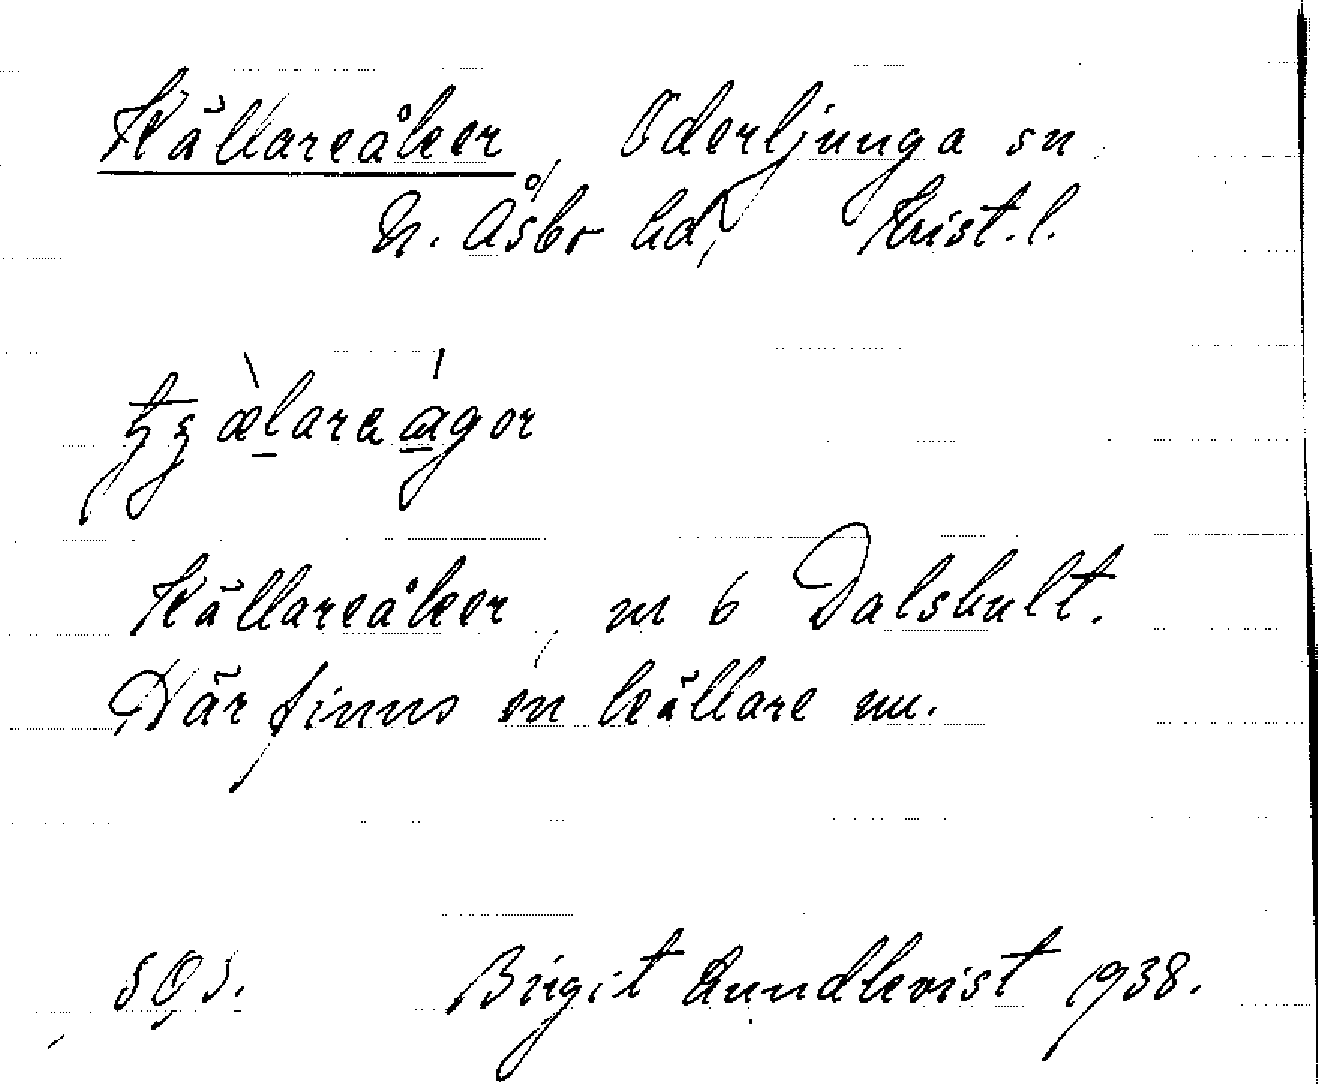 Källareåker, Oderljunga sn
N. Åsbo hd, Krist. l.
Källareåker, nr 6 Dalshult.
Där finns en källare nu.
Birgit Lundkvist 1938.